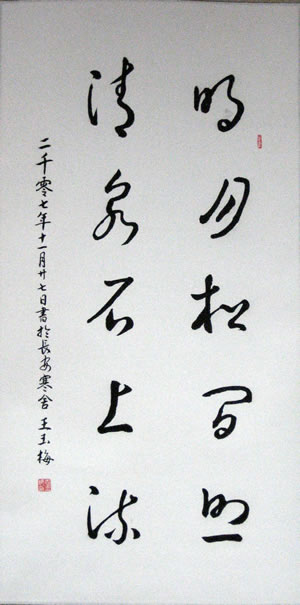 明月松间照
清泉石上流
二千零七年十一月廿七日書於長安寒舍 王玉梅